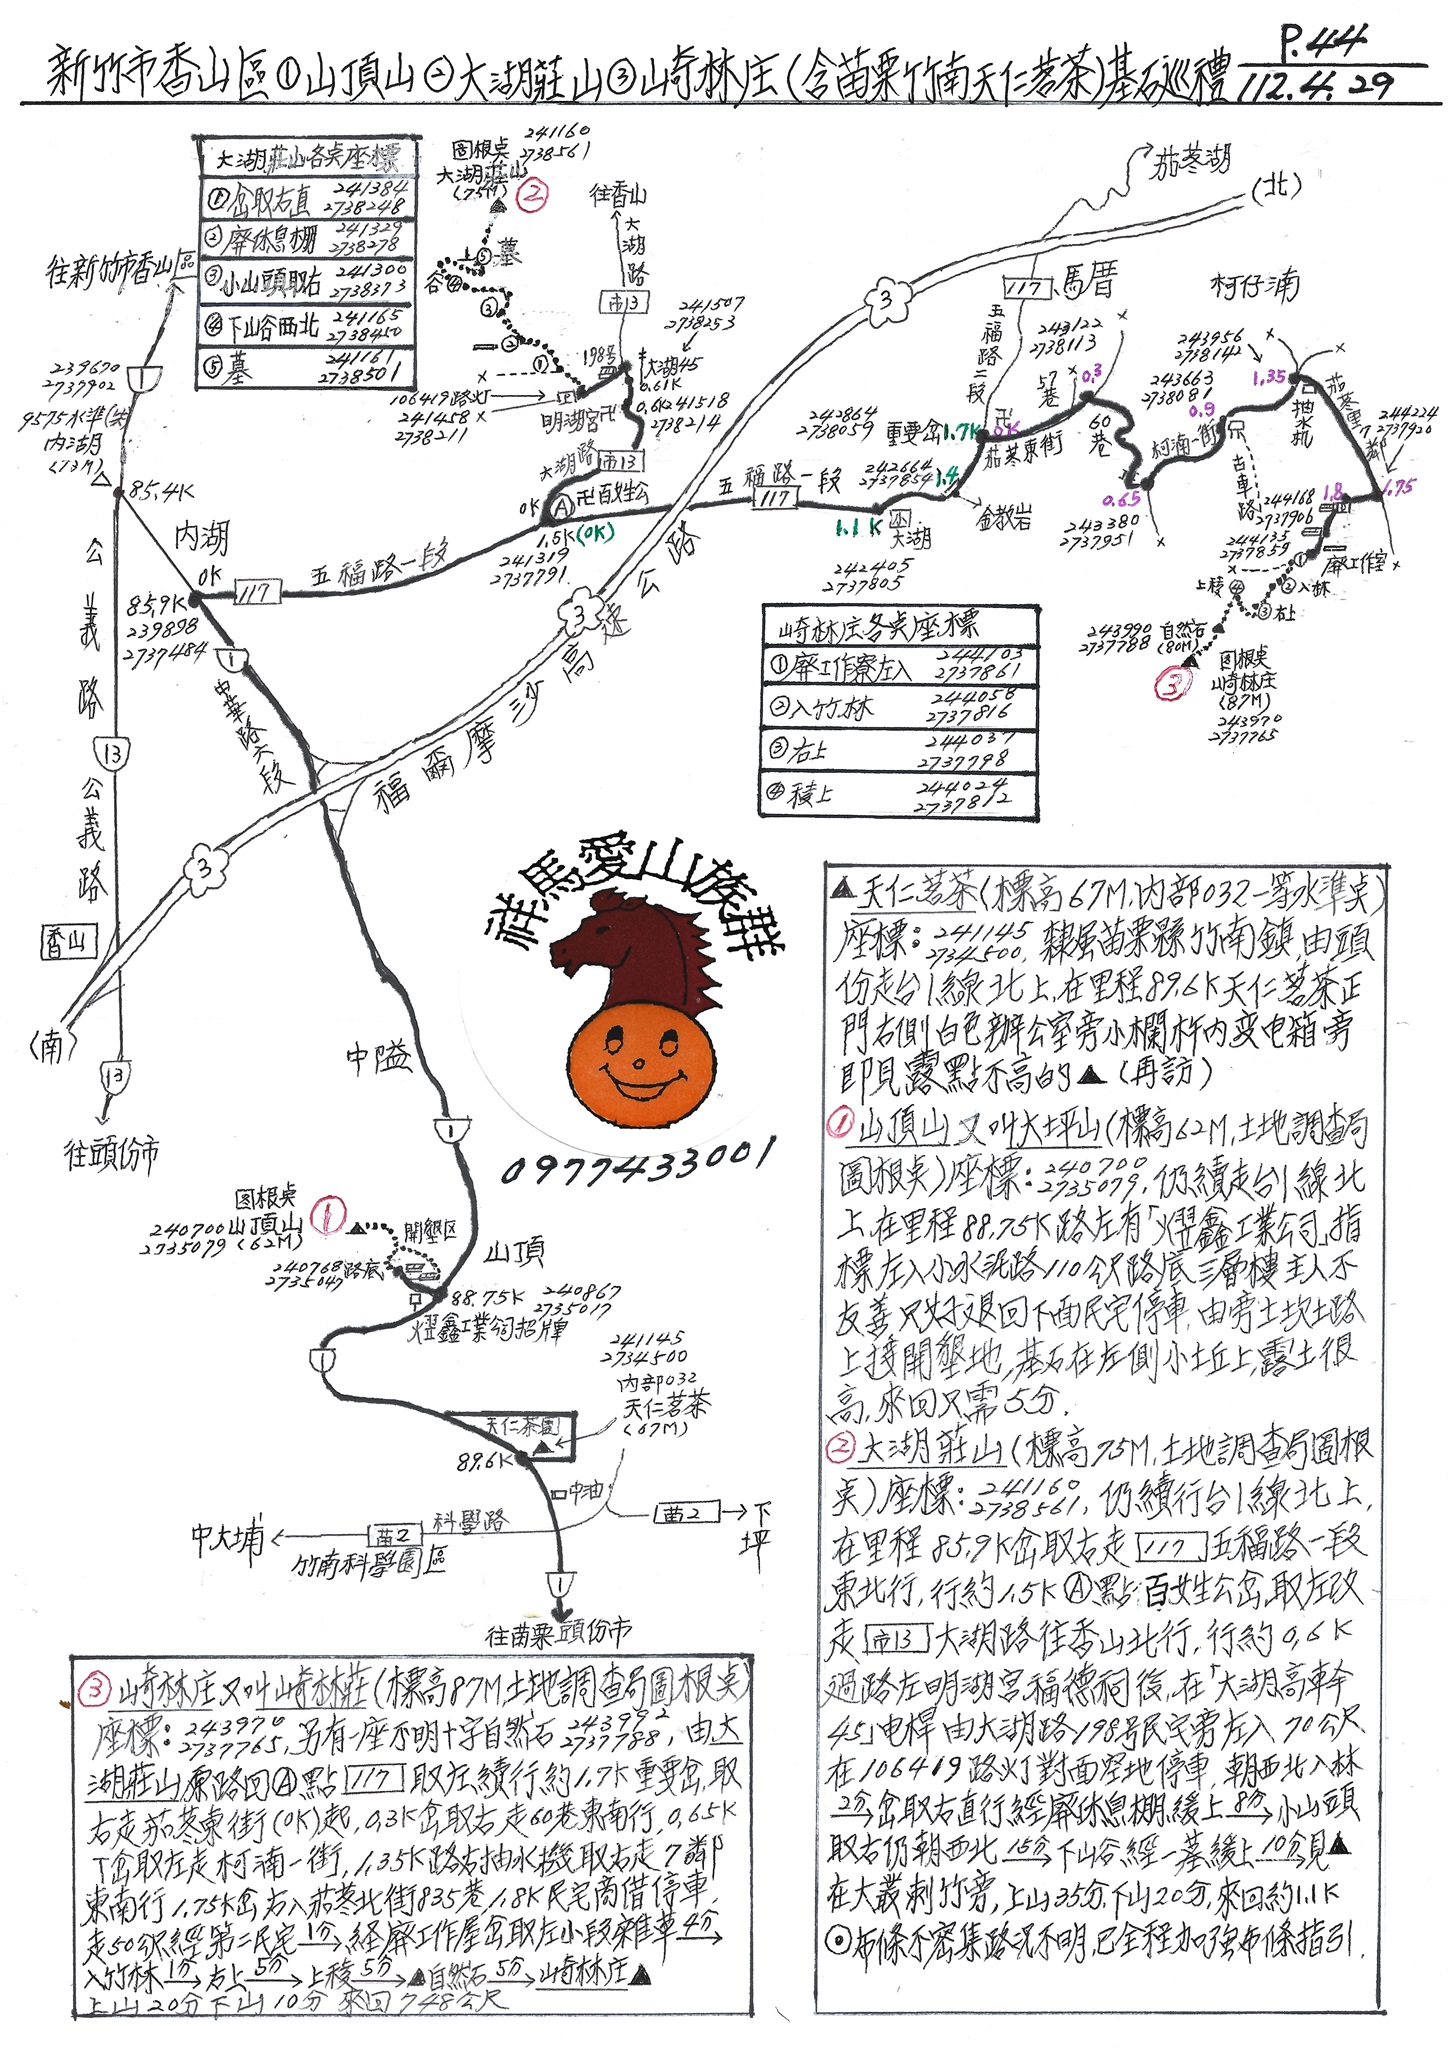 P.44
新竹市香山區①山頂山②大湖莊山③山崎林庄(含苗栗竹南天仁茗茶)基石巡禮 112.4.29
大湖莊山各桌座標
①岔取右直 241384 2738248
②廢休息棚 241329 2738278
③小山頭取右 241300 2738373
④下山谷西北 241165 2738450
⑤墓 241161 2738501
241160
2738561
圖根桌
大湖莊山
(75M)
②
往香山
大湖路
市13
茄苳湖
(北)
往新竹市香山區
239670
2737902
1
9575水準(共)
內湖
(73M)
85.4K
上
⑤
墓
谷
④
③
②
①
198号
大湖45
0.61K
241507
2738253
106419路灯
241458
2738211
明湖宮
卍
0.6K
241518
2738214
大湖路
市13
3
117
馬厝
五福路二段
柯仔湳
243122
2738113
57巷
0.3
243956
2738142
243663
2738081
1.35
0.9
抽水机
茄苳里7鄰
244224
2737920
242864
2738059
重要岔
1.7K
0K
卍
茄苳東街
60巷
柯湳一街
古車路
244168
2737906
1.8
1.75
244135
2737859
0.65
243380
2737951
廢工作室
②入林
③右上
上稜
④
①
243990
2737788
自然石
(80M)
③
圖根桌
山崎林庄
(87M)
243970
2737765
242664
2737854
1.4
金教岩
五福路一段
117
1.1K
大湖
242405
2737805
0K
Ⓐ
卍百姓公
1.5K(0K)
241319
2737791
內湖
0K
117
五福路一段
85.9K
239898
2737484
1
中華路六段
公義路
13
公義路
福爾摩沙高速公路
3
3
香山
(南)
13
往頭份市
崎林庄各桌座標
①廢工作寮左入 244103 2737861
②入竹林 244058 2737816
③右上 244037 2737798
④積上 244024 2737812
祥馬愛山族群
0977433001
中隘
1
圖根桌
240700山頂山
2735079(62M)
①
開墾区
山頂
240768
2735047
路底
88.75K
240867
2735017
熤鑫工業公司招牌
1
241145
2734500
內部032
天仁茗茶
(67M)
天仁茶園
89.6K
中油
科學路
苗2
下坪
中大埔
苗2
竹南科學園區
1
往苗栗頭份市
▲天仁茗茶(標高67M,內部032一等水準桌)
座標:241145 2734500,隸屬苗栗縣竹南鎮,由頭
份走台1線北上,在里程89.6K天仁茗茶正
門右側白色辦公室旁小欄杆內变电箱旁
即見露點不高的▲(再訪)
①山頂山又叫大坪山(標高62M,土地調查局
圖根桌)座標:240700 2735079,仍續走台1線北
上,在里程88.75K路左有「熤鑫工業公司」指
標左入小水泥路110公尺路底三層樓主人不
友善只好退回下面民宅停車,由旁土坎土路
上接開墾地,基石在左側小土丘上,露土很
高,來回只需5分.
②大湖莊山(標高75M,土地調查局圖根
桌)座標:241160 2738561,仍續行台1線北上,
在里程85.9K岔取右走117五福路一段
東北行,行約1.5KⒶ點百姓公岔取左改
走市13大湖路往香山北行,行約0.6K
過路左明湖宮福德祠後,在「大湖高幹
45」电桿由大湖路198号民宅旁左入70公尺
在106419路灯對面空地停車,朝西北入林
2分→岔取右直行經廢休息棚緩上8分→小山頭
取右仍朝西北15分→下山谷經一墓緩上10分→見▲
在大叢刺竹旁,上山35分下山20分,來回約1.1K
⊙布條不密集路況不明,已全程加強布條指引.
③崎林庄又叫崎林莊(標高87M,土地調查局圖根桌)
座標:243970 2737765,另有一座不明十字自然石243992 2737788,由大
湖莊山原路回Ⓐ點117取左續行約1.7K重要岔,取
右走茄苳東街(0K)起,0.3K岔取右走60巷東南行,0.65K
T岔取左走柯湳一街,1.35K路右抽水機取右走7鄰
東南行1.75K岔右入茄苳北街835巷,1.8K民宅商借停車,
走50公尺經第二民宅1分→經廢工作屋岔取左小段雜草4分→
入竹林1分→右上5分→上稜5分→▲自然石5分→山崎林庄▲
上山20分下山10分 來回748公尺